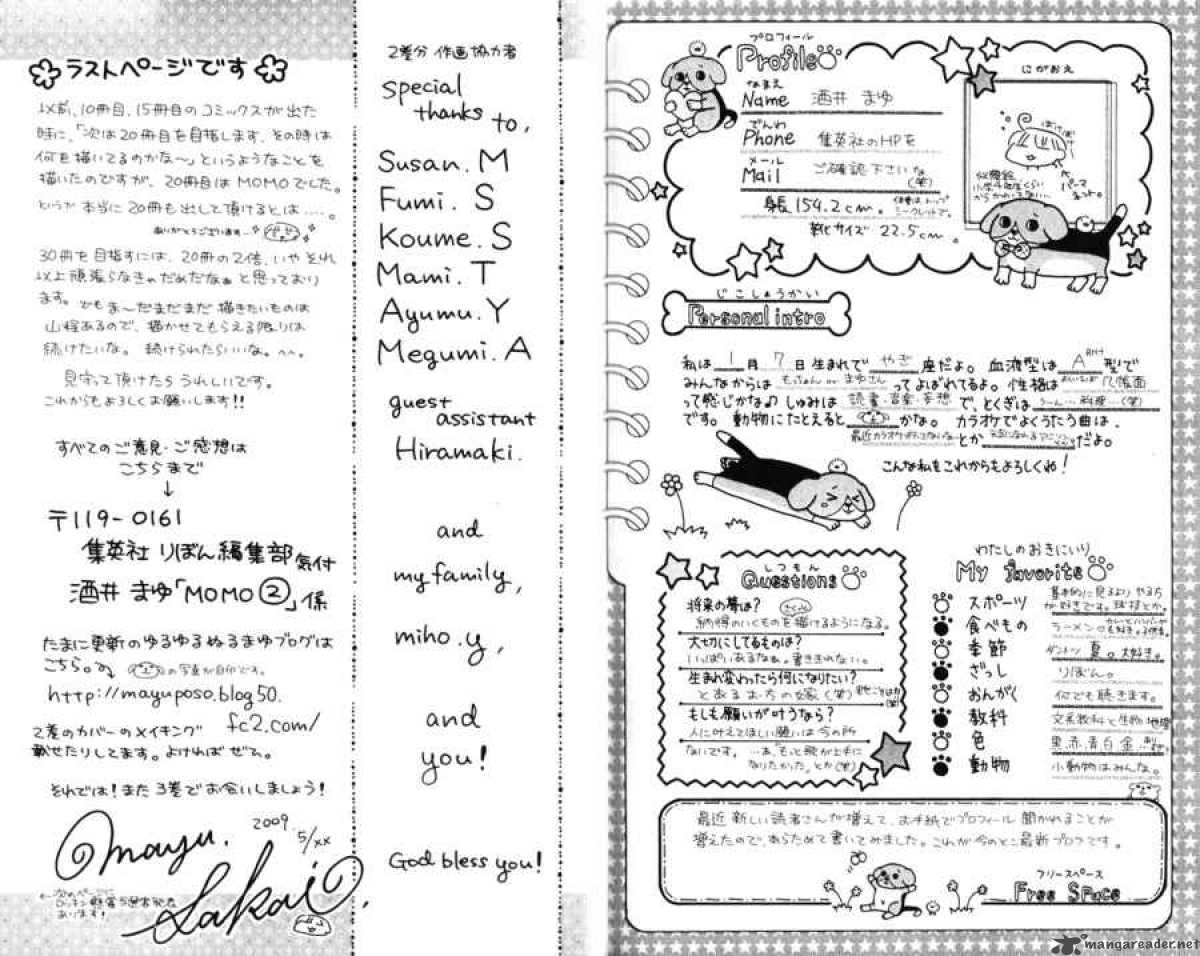 ラストページです
以前、10冊目、15冊目のコミックスが出た
時に、「次は20冊目を目指します、その時は
何を描いてるのかな〜」というようなことを
描いたのですが、20冊目はMOMOでした。
というか本当に20冊も出して頂けるとは……。
ありがとうございます…
30冊を目指すには、20冊の2倍、いやそれ
以上頑張らなきゃだめだなぁと思っており
ます。でもま〜だまだまだ描きたいものは
山程あるので、描かせてもらえる限りは
続けたいな。続けられたらいいな。^^。
見守って頂けたらうれしいです。
これからもよろしくお願いします!!
すべてのご意見・ご感想は
こちらまで
↓
〒119-0161
集英社 りぼん編集部 気付
酒井 まゆ「MOMO②」係
たまに更新のゆるゆるぬるまゆブログは
こちら。
の写真が目印です。
http://mayuposo.blog50.
fc2.com/
2巻のカバーのメイキング
載せたりしてます。よければぜひ。
それでは!また3巻でお会いしましょう!
2009.
5/xx
mayu.
Sakai
←次のページに
あります!
2巻分 作画協力者
special
thanks to,
Susan.M
Fumi.S
Koume.S
Mami.T
Ayumu.Y
Megumi.A
guest
assistant
Hiramaki.
and
my family,
miho.y,
and
you!
God bless you!
プロフィール
Profile
なまえ
Name 酒井 まゆ
でんわ
Phone 集英社のHPを
メール
Mail ご確認下さいな
(笑)
身長 154.2cm。
靴サイズ 22.5cm。
にがおえ
じこしょうかい
Personal intro
私は1月7日生まれで やぎ 座だよ。血液型は A RH+ 型で
みんなからは もっちゃん or まゆさん ってよばれてるよ。性格は 几帳面
って感じかな♪ しゅみは 読書・音楽・妄想 で、とくぎは うーん…料理(笑)
です。動物にたとえると かな。カラオケでよくうたう曲は、
とか だよ。
こんな私もこれからもよろしくね!
しつもん
Questions
将来の夢は?
納得のいくものを描けるようになる。
大切にしてるものは?
いっぱいあるなぁ。書ききれない。
生まれ変わったら何になりたい?
とあるおうちの嫁(笑)
もしも願いが叶うなら?
人に叶えてほしい願いは今の所
ないです。…あ、「もっと歌が上手に
なりたかった」とか(笑)
わたしのおきにいり
My favorite
スポーツ 基本的に見るよりやる方
が好きです。球技とか。
食べもの ラーメン
季節 ダントツ夏。大好き。
ざっし りぼん。
おんがく 何でも聴きます。
教科 文系教科と生物・地理
色 黒、赤、青、白、金、
動物 小動物はみんな。
最近 新しい読者さんが増えて、お手紙でプロフィール聞かれることが
増えたので、あらためて書いてみました。これが今のとこ最新プロフです。
フリースペース
Free Space
mangareader.net